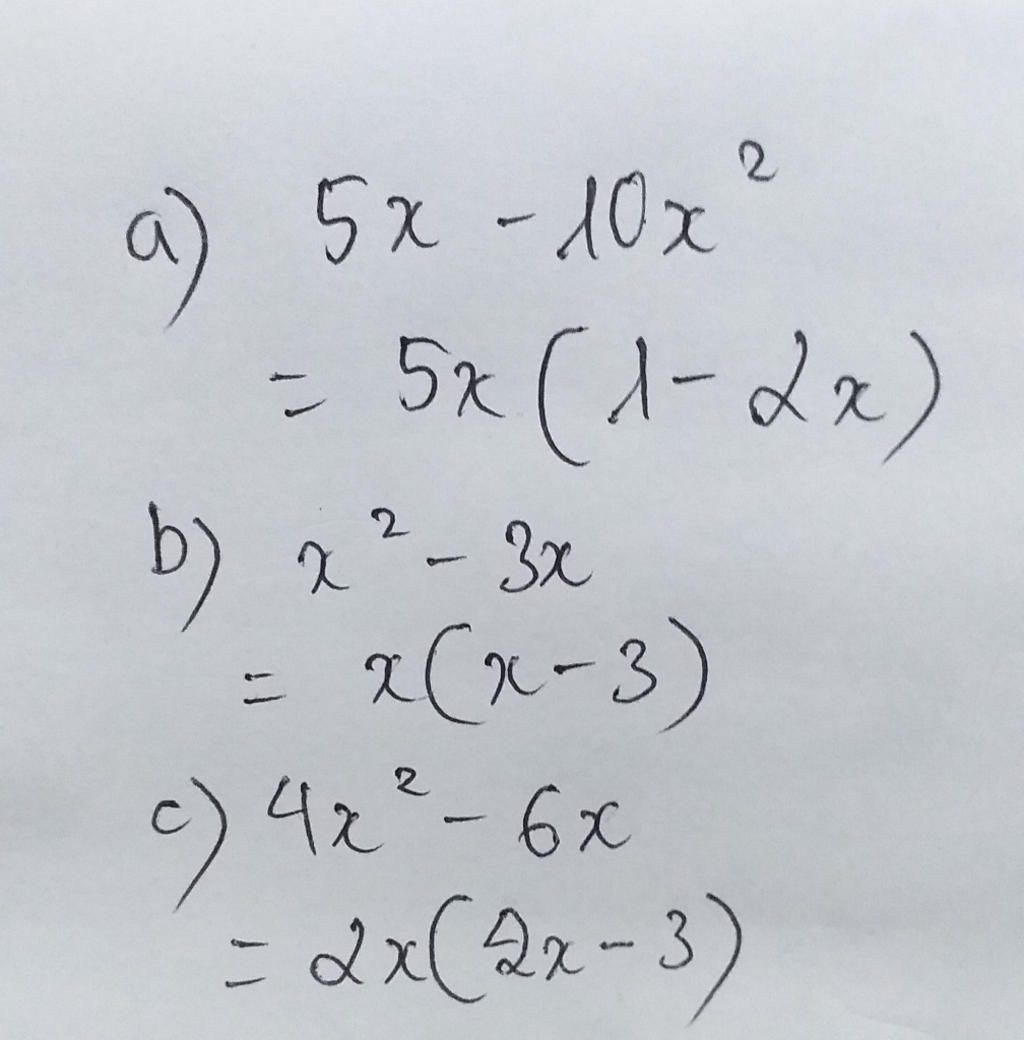 a) 5x - 10x²
= 5x(1 - 2x)
b) x² - 3x
= x(x - 3)
c) 4x² - 6x
= 2x(2x - 3)